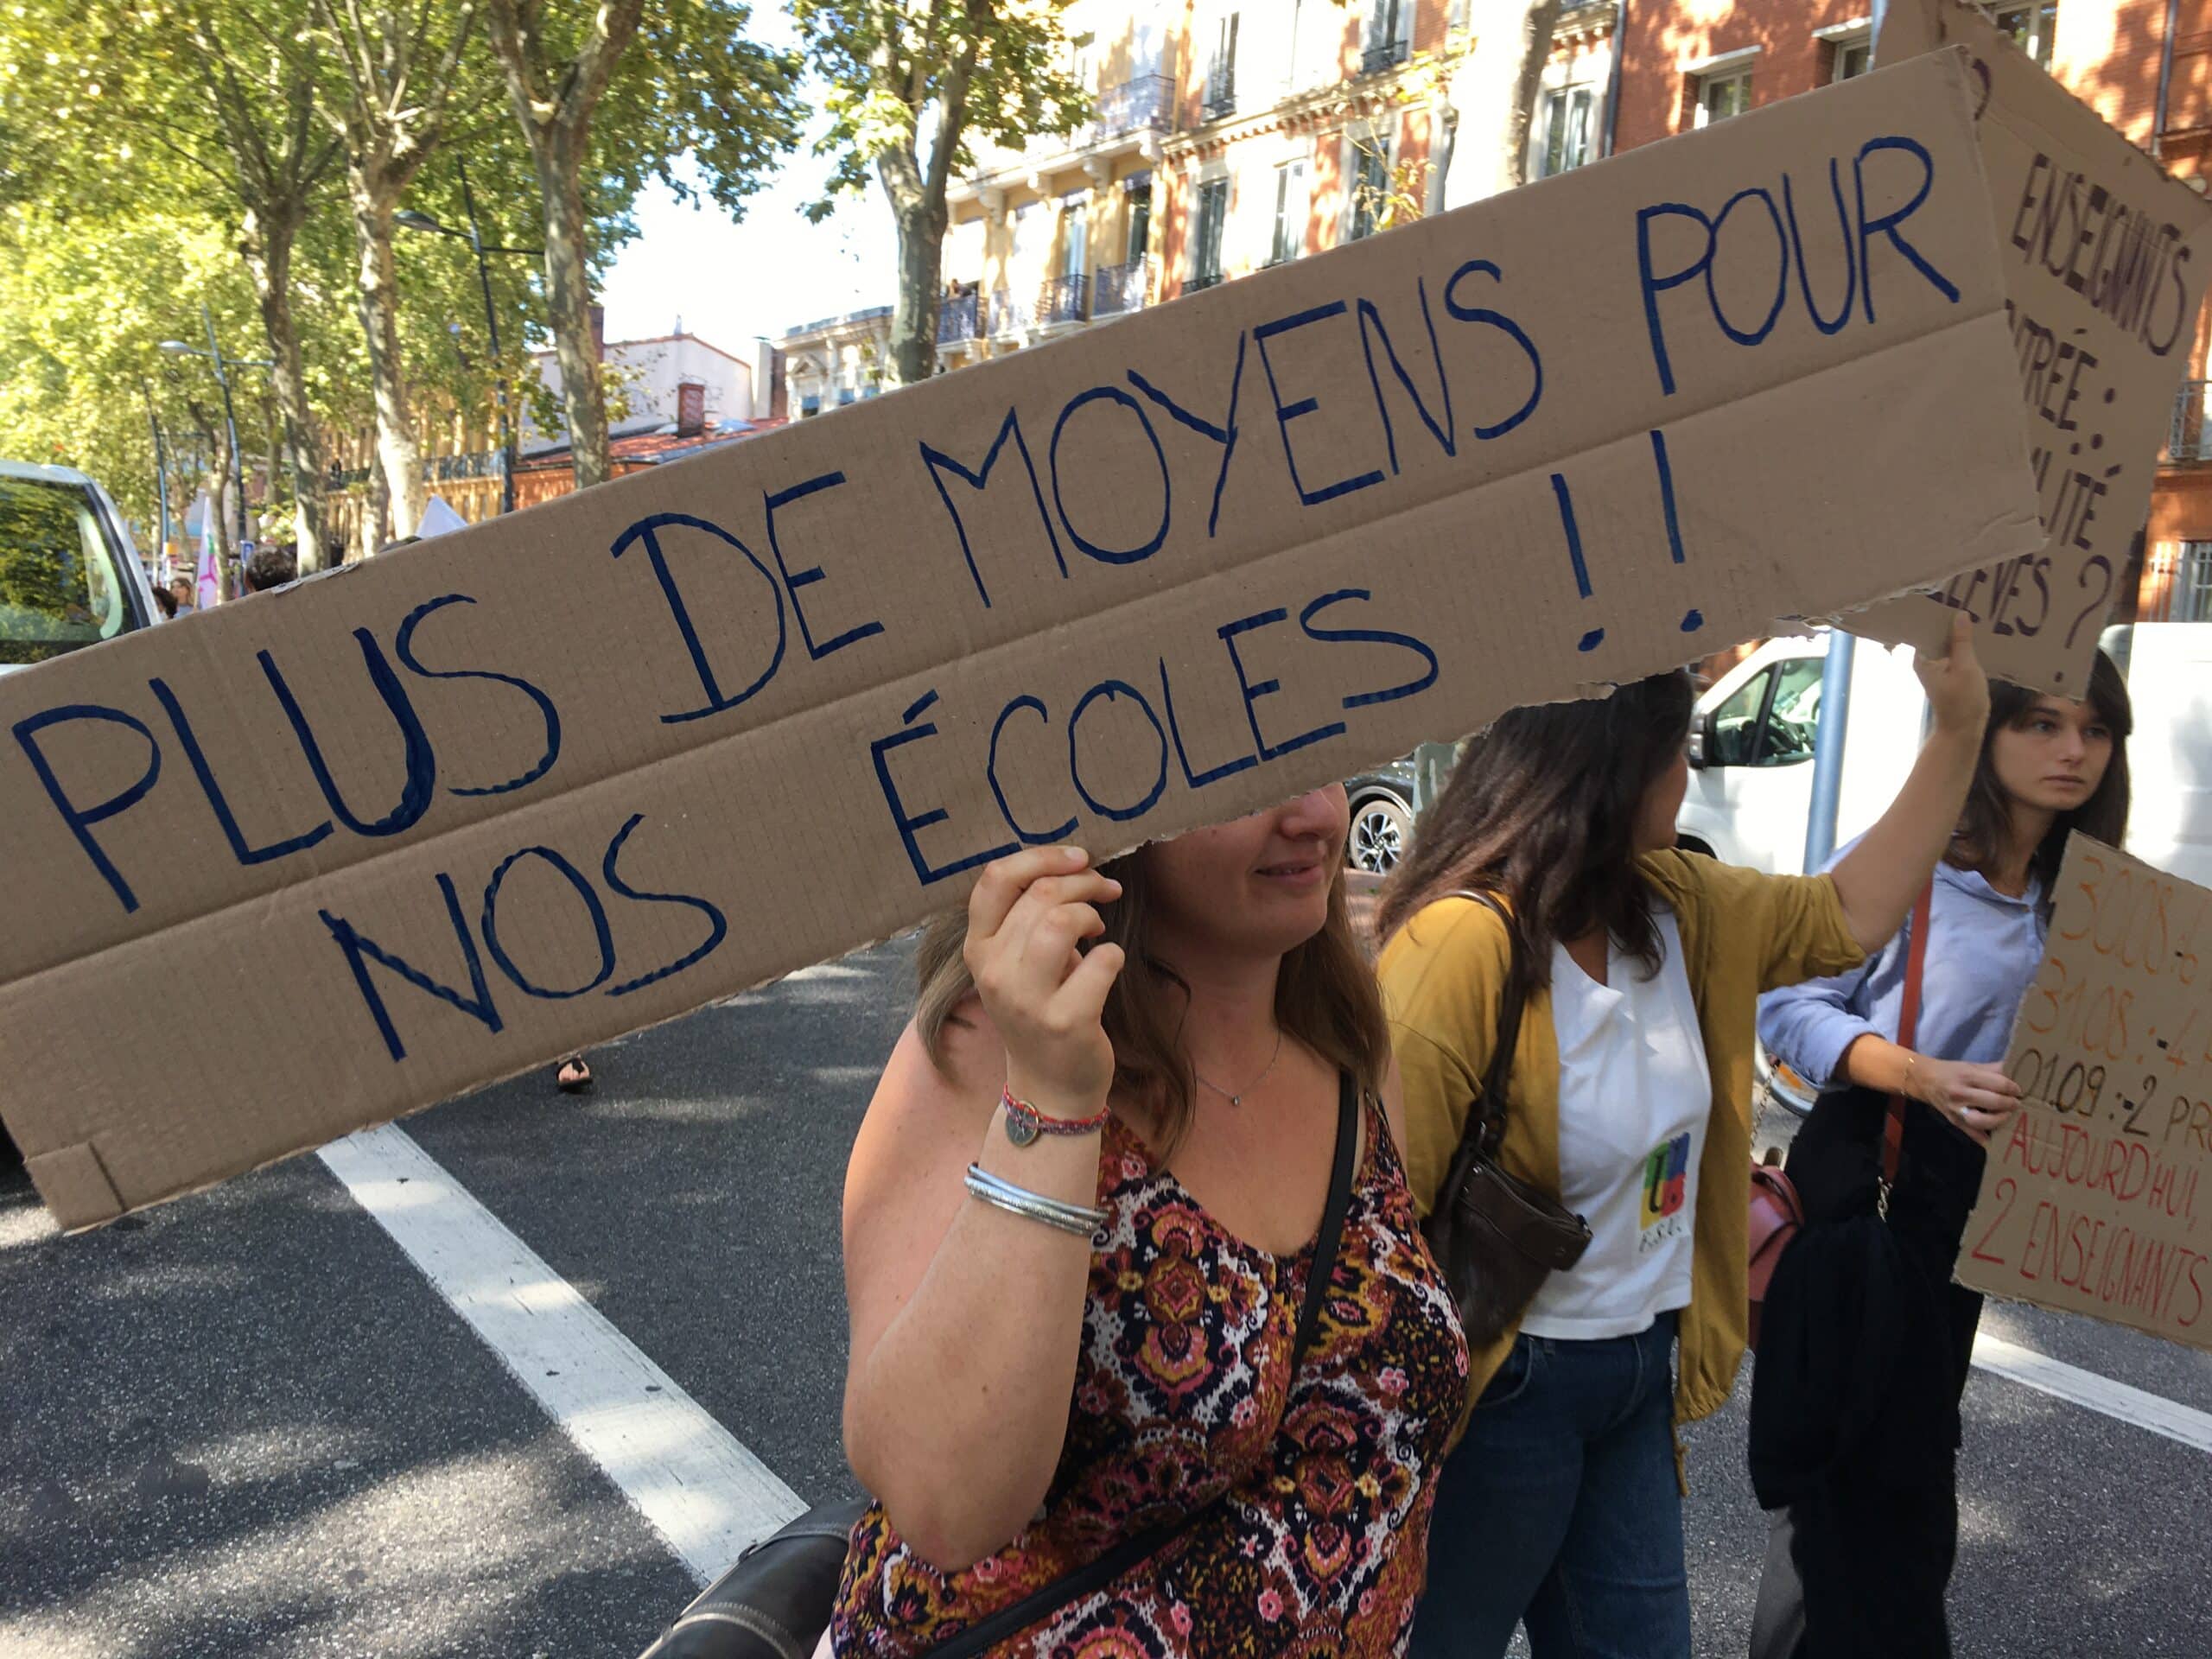 PLUS DE MOYENS POUR
NOS ÉCOLES !!
ENSEIGNANTS
?
30.08
31.08 :
01.09 : -2
AUJOURD'HUI,
2 ENSEIGNANTS